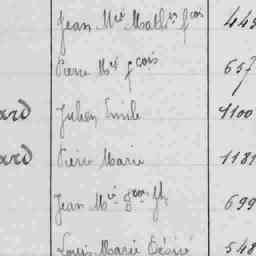 Jean Mie Math fcois 445
Pierre Mie fcois 657
ard Julien Emile 1100
ard Pierre Marie 1181
Jean Mie 699
Louis Marie Désiré 548